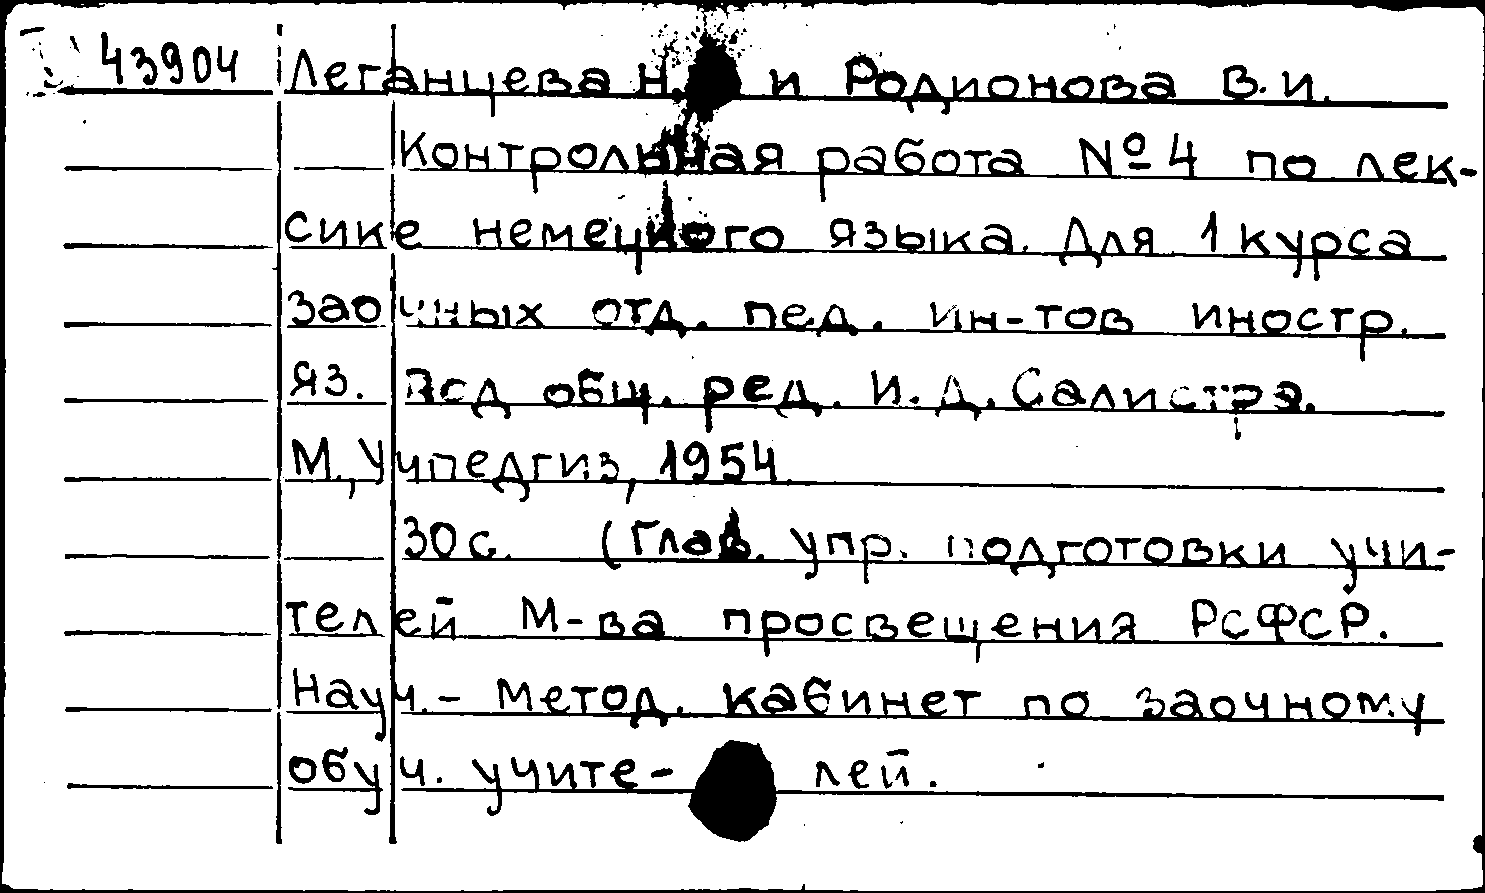 43904 Леганцева Н. и Родионова В.И.
Контрольная работа № 4 по лек-
сике немецкого языка. Для 1 курса
заочных отд. пед. ин-тов иностр.
яз. Под общ. ред. И.Д. Салистра.
М., Учпедгиз, 1954
30 с. (Глав. упр. подготовки учи-
телей М-ва просвещения РСФСР.
Науч.-метод. кабинет по заочному
обуч. учите- лей.